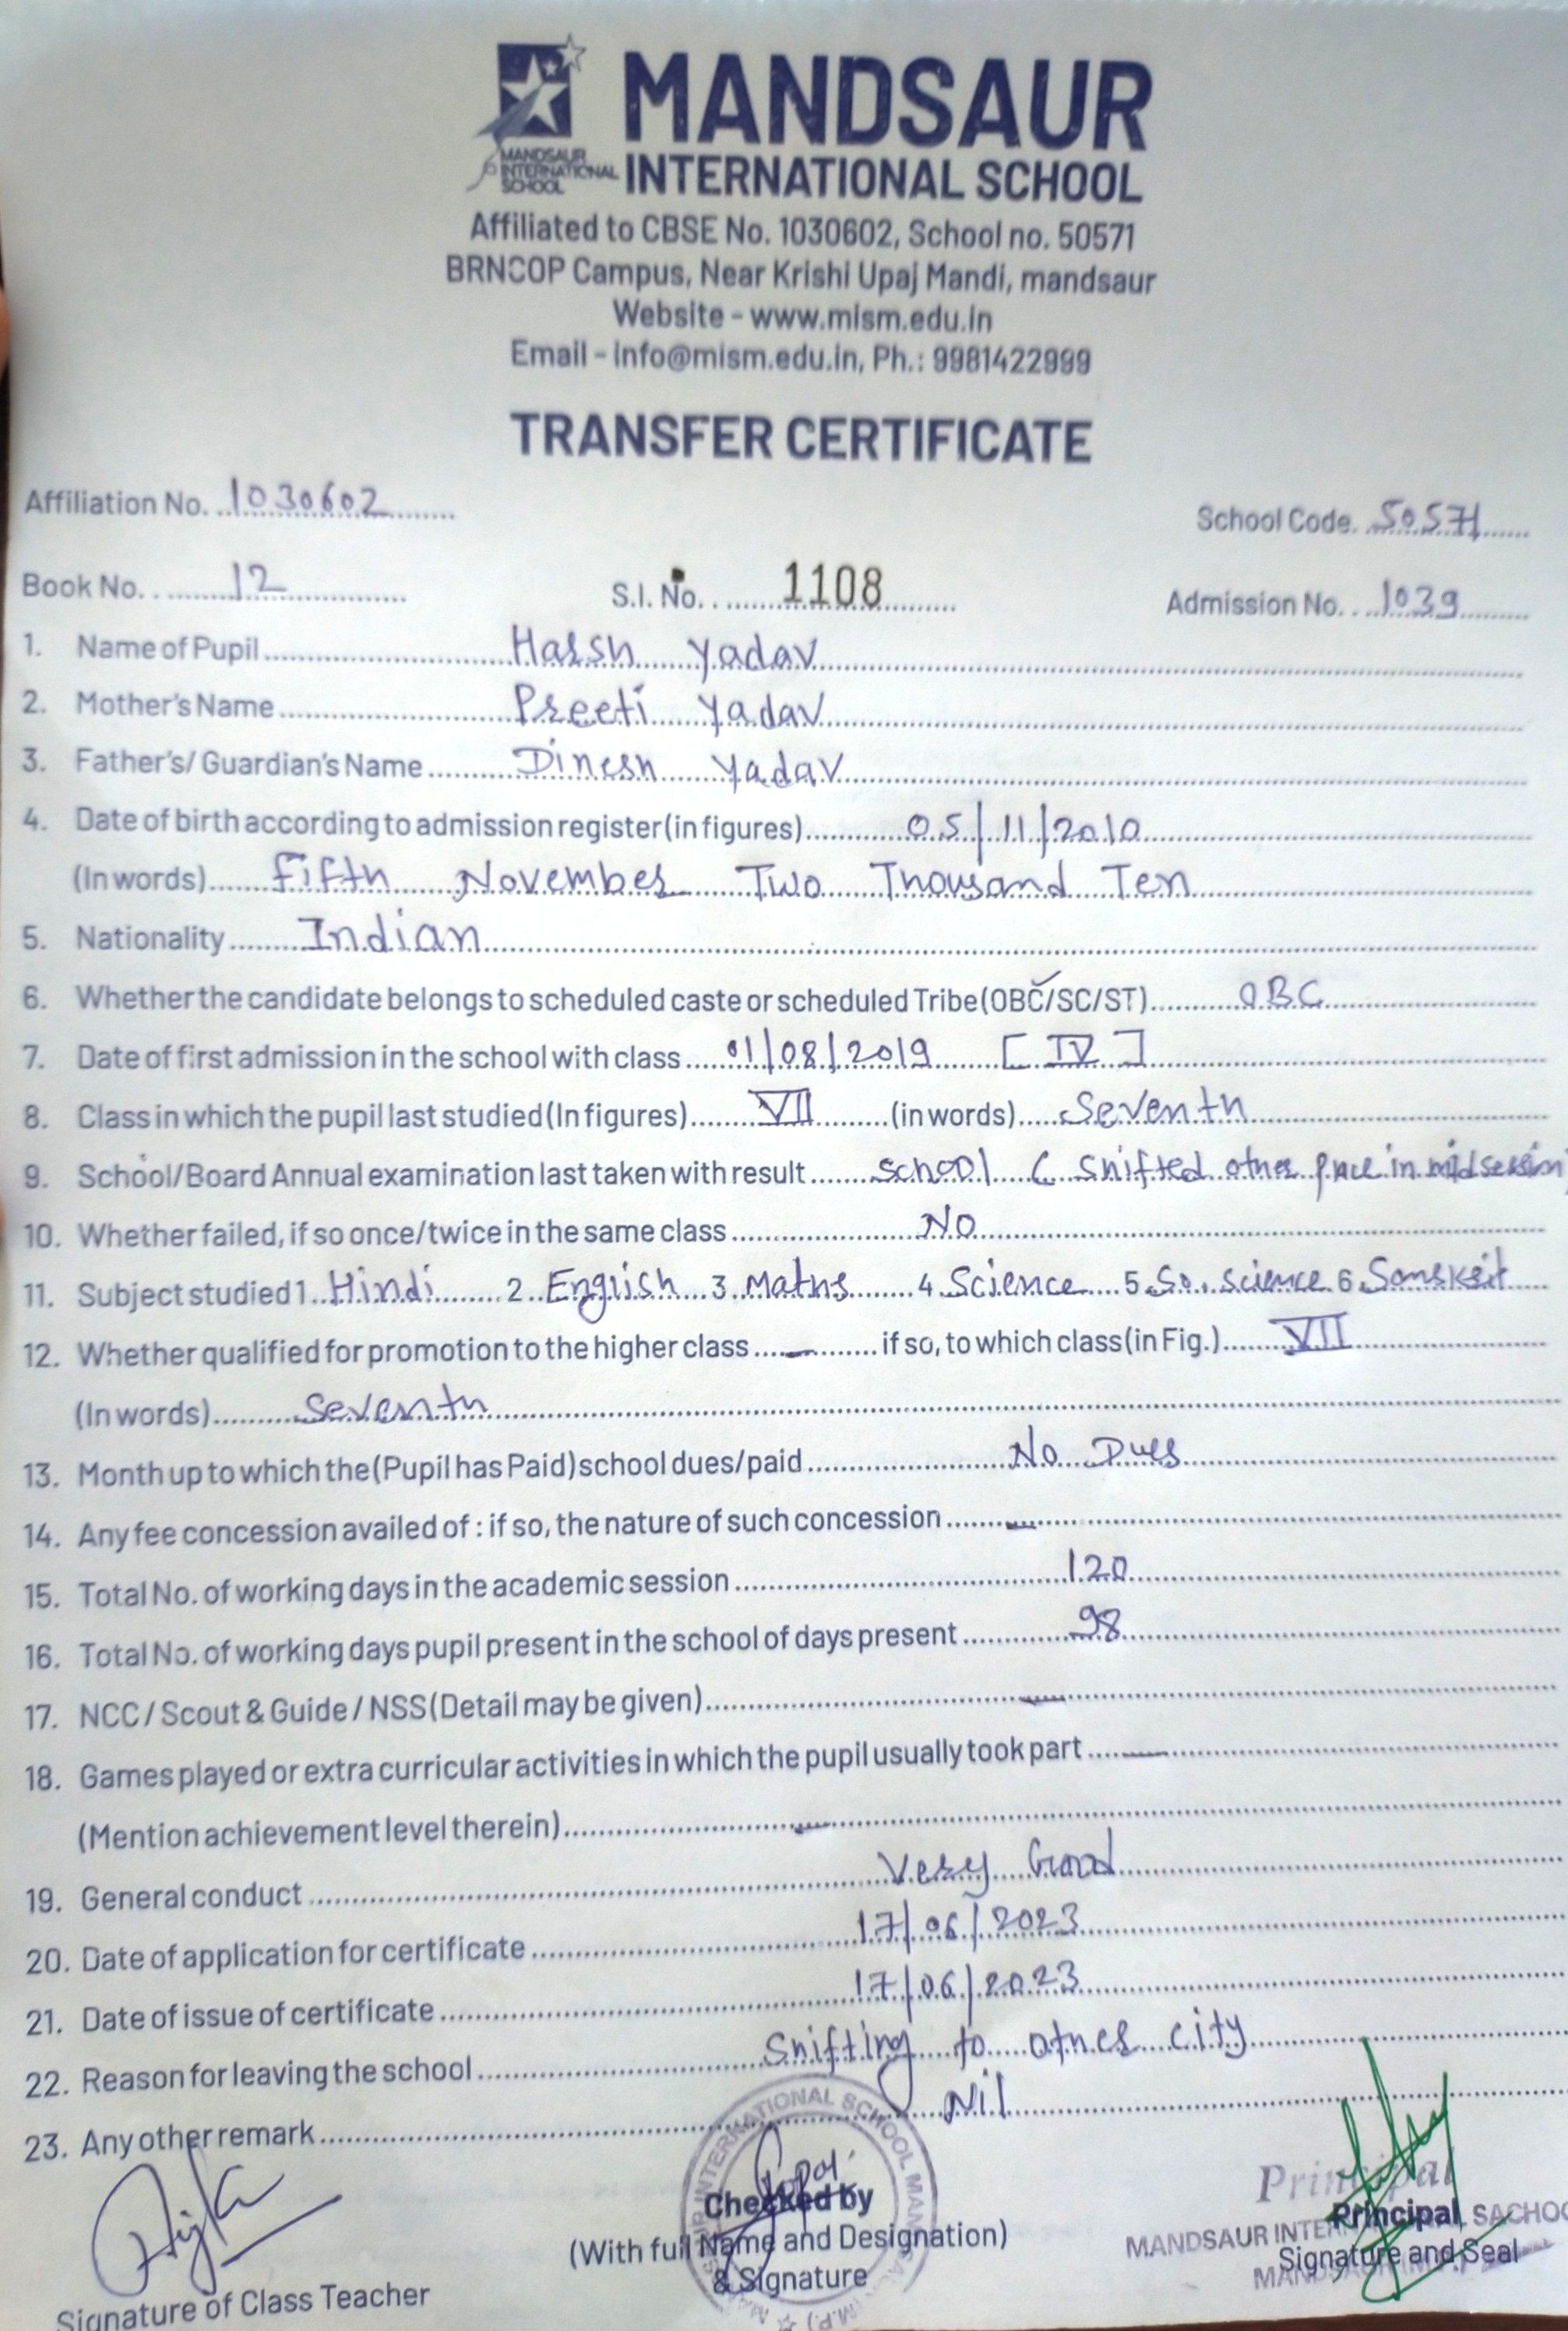 MANDSAUR
MANDSAUR
INTERNATIONAL
SCHOOL
INTERNATIONAL SCHOOL
Affiliated to CBSE No. 1030602, School no. 50571
BRNCOP Campus, Near Krishi Upaj Mandi, mandsaur
Website - www.mism.edu.in
Email - info@mism.edu.in, Ph.: 9981422999
TRANSFER CERTIFICATE
Affiliation No. 1030602 School Code. 50571
Book No. 12 S.I. No. 1108 Admission No. 1039
1. Name of Pupil Harsh Yadav
2. Mother's Name Preeti Yadav
3. Father's/ Guardian's Name Dinesh Yadav
4. Date of birth according to admission register (in figures) 05/11/2010
(In words) Fifth November Two Thousand Ten
5. Nationality Indian
6. Whether the candidate belongs to scheduled caste or scheduled Tribe (OBC/SC/ST) OBC
7. Date of first admission in the school with class 01/08/2019 [IV]
8. Class in which the pupil last studied (In figures) VII (in words) Seventh
9. School/Board Annual examination last taken with result school ( Shifted other place in midsession)
10. Whether failed, if so once/twice in the same class No
11. Subject studied 1. Hindi 2. English 3. Maths 4. Science 5. So. science 6. Sanskrit
12. Whether qualified for promotion to the higher class — if so, to which class (in Fig.) VII
(In words) Seventh
13. Month up to which the (Pupil has Paid) school dues/paid No Dues
14. Any fee concession availed of : if so, the nature of such concession —
15. Total No. of working days in the academic session 120
16. Total No. of working days pupil present in the school of days present 98
17. NCC / Scout & Guide / NSS (Detail may be given) —
18. Games played or extra curricular activities in which the pupil usually took part —
(Mention achievement level therein) —
19. General conduct Very Good
20. Date of application for certificate 17/06/2023
21. Date of issue of certificate 17/06/2023
22. Reason for leaving the school Shifting to other city
23. Any other remark Nil
INTERNATIONAL SCHOOL
Principal
Checked by Principal
MANDSAUR INTERNATIONAL SACHOO
(With full Name and Designation) Signature and Seal
MANDSAUR (M.P.)
& Signature
Signature of Class Teacher
(M.P.)